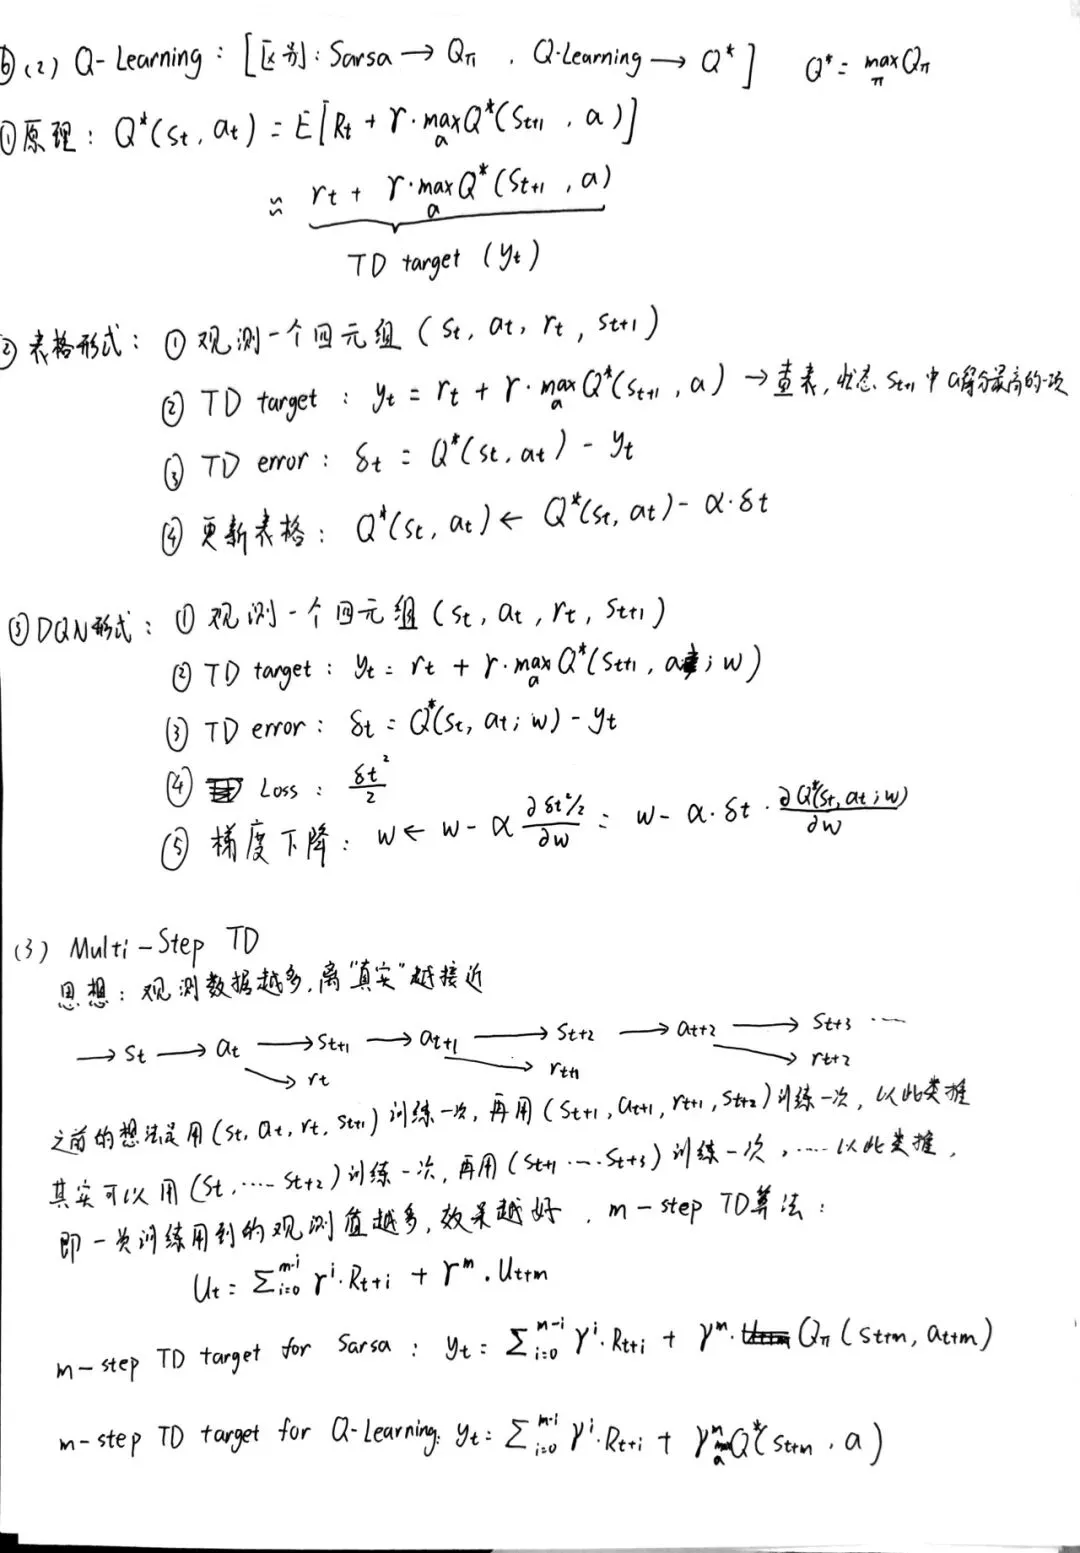 ⑥(2) Q-Learning: [区别: Sarsa → Qπ , Q-Learning → Q*] Q* = max_π Qπ
①原理: Q*(st, at) = E[Rt + γ·max_a Q*(St+1, a)]
≈ rt + γ·max_a Q*(St+1, a)
TD target (yt)
②表格形式: ① 观测一个四元组 (st, at, rt, st+1)
② TD target: yt = rt + γ·max_a Q*(st+1, a) → 查表, 状态 st+1 中 a得分最高的一项
③ TD error: δt = Q*(st, at) - yt
④ 更新表格: Q*(st, at) ← Q*(st, at) - α·δt
③DQN形式: ① 观测一个四元组 (st, at, rt, st+1)
② TD target: yt = rt + γ·max_a Q*(st+1, a; w)
③ TD error: δt = Q*(st, at; w) - yt
④ Loss: δt²/2
⑤ 梯度下降: w ← w - α ∂δt²/2 / ∂w = w - α·δt·∂Q*(st, at; w)/∂w
(3) Multi-Step TD
思想: 观测数据越多, 离"真实"越接近
→ st → at → st+1 → at+1 → st+2 → at+2 → st+3 ……
rt rt+1 rt+2
之前的想法是用(st, at, rt, st+1)训练一次, 再用(st+1, at+1, rt+1, st+2)训练一次, 以此类推
其实可以用(st, …… st+2)训练一次, 再用(st+1 …… st+3)训练一次, …… 以此类推,
即一次训练用到的观测值越多, 效果越好. m-step TD算法:
Ut = Σ_{i=0}^{m-i} γ^i·Rt+i + γ^m·Ut+m
m-step TD target for Sarsa: yt = Σ_{i=0}^{m-i} γ^i·Rt+i + γ^m·Qπ(st+m, at+m)
m-step TD target for Q-Learning: yt = Σ_{i=0}^{m-i} γ^i·Rt+i + γ^m max_a Q*(st+m, a)